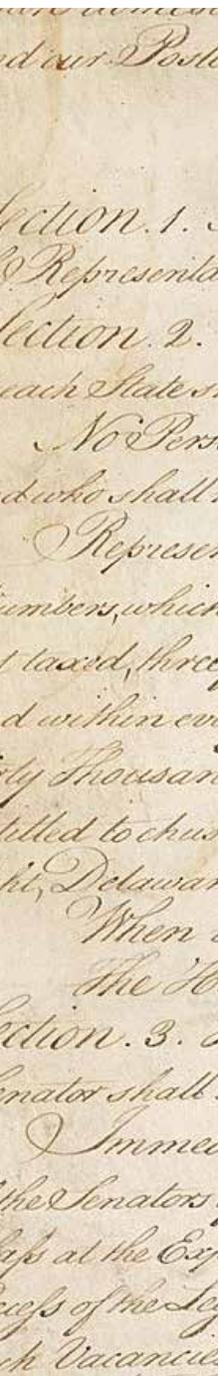 nd our Poste
ection. 1.
& Representa
ection. 2.
each State s
No Pers
d who shall
Represen
umbers, which
t taxed, three
d within eve
rty Thousan
titled to chus
ht, Delawar
When
The H
ection. 3.
enator shall
Immed
the Senators
lass at the Exp
cess of the Leg
ch Vacancies